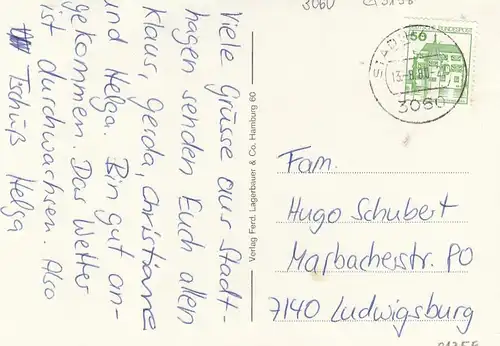 3060
Viele Grüsse aus Stadt-
hagen senden Euch allen
Klaus, Gerda, Christiane
und Helga. Bin gut an-
gekommen. Das Wetter
ist durchwachsen. Also
Tschüß Helga
Verlag Ferd. Lagerbauer & Co. Hamburg 60
50
DEUTSCHE BUNDESPOST
3060
Fam.
Hugo Schubert
Marbacherstr. 80
7140 Ludwigsburg